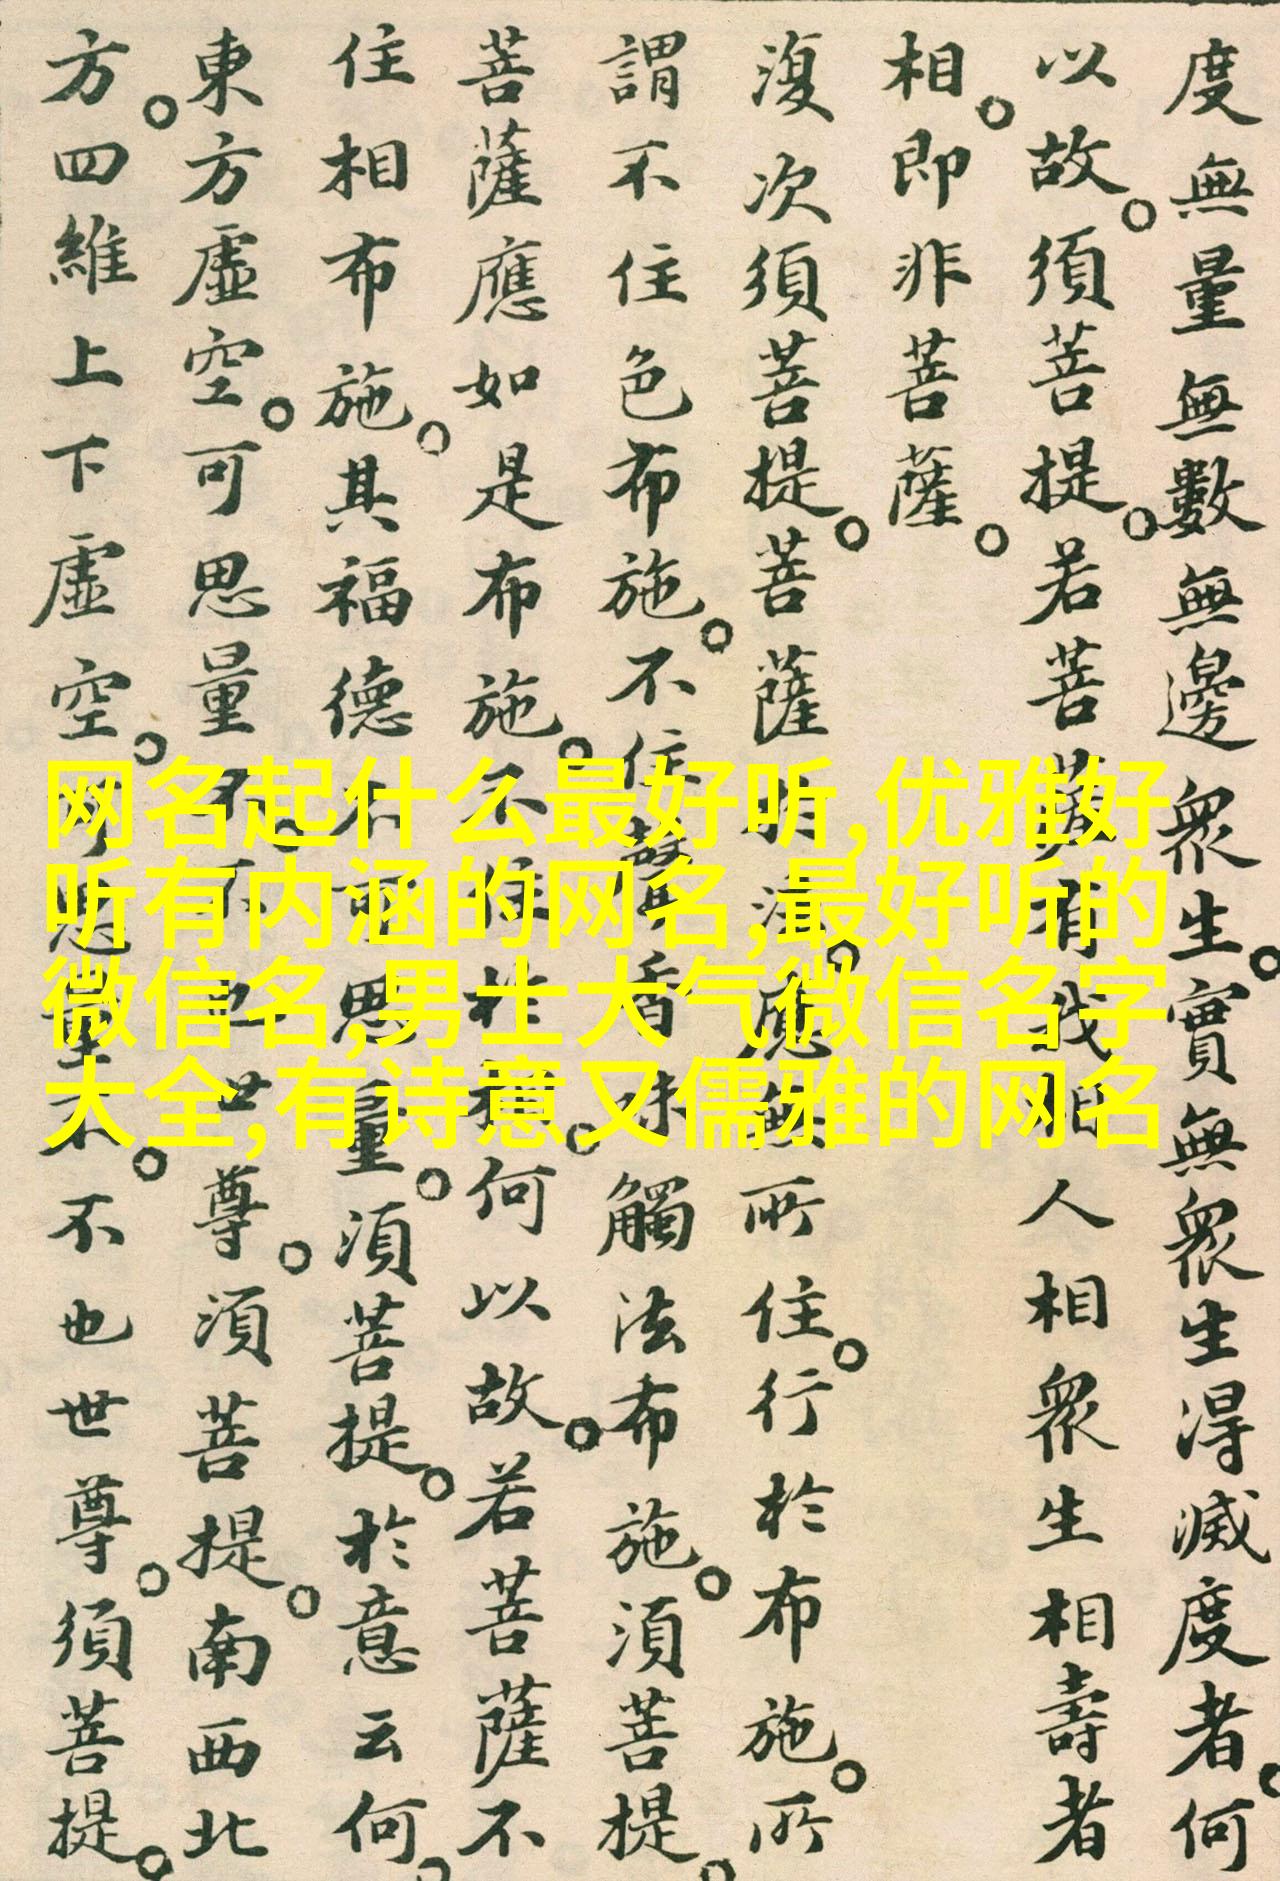 度無量無數無邊眾生。實無眾生得滅度者。何
以故。須菩提。若菩薩有我相人相眾生相壽者
相。即非菩薩。
復次須菩提。菩薩於法。應無所住。行於布施。所
謂不住色布施。不住聲香味觸法布施。須菩提。
菩薩應如是布施。不住於相。何以故。若菩薩不
住相布施。其福德不可思量。須菩提。於意云何。
東方虛空。可思量不。不也世尊。須菩提。南西北
方。四維上下虛空。可思量不。不也世尊。須菩提。
网名起什么最好听,优雅好
听有内涵的网名,最好听的
微信名,男士大气微信名字
大全,有诗意又儒雅的网名